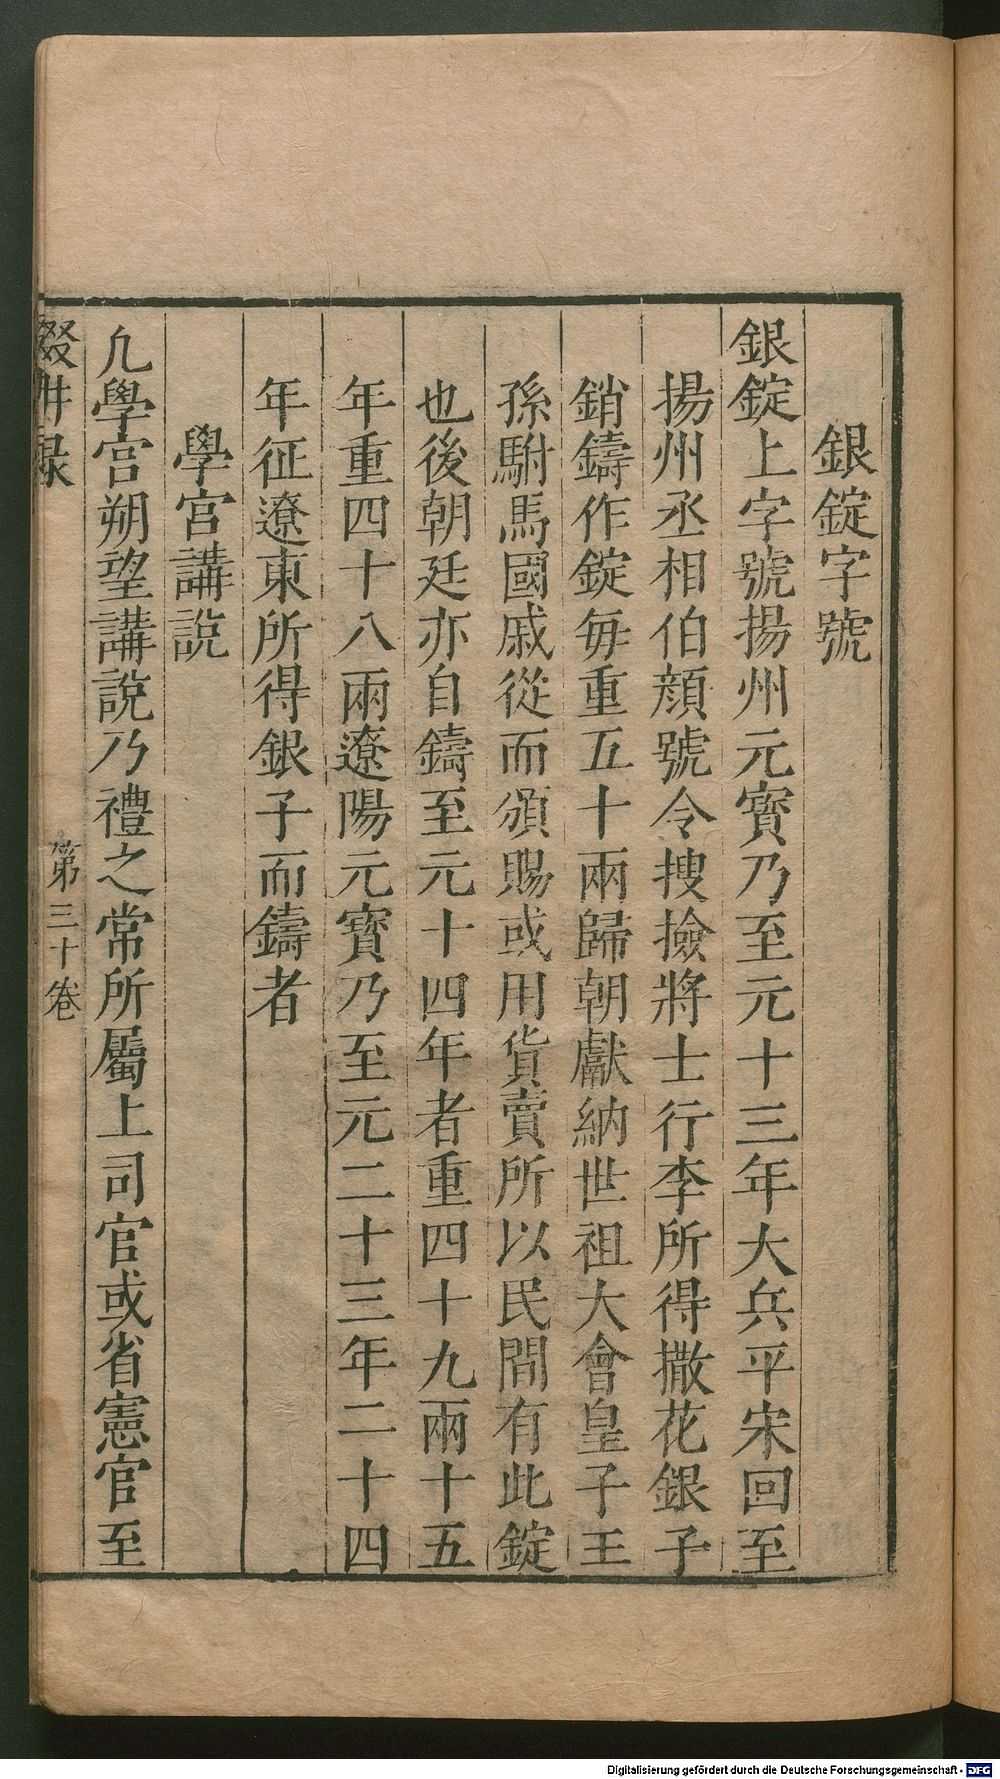 銀錠字號
銀錠上字號揚州元寳乃至元十三年大兵平宋回至
揚州丞相伯顔號令搜撿將士行李所得撒花銀子
銷鑄作錠毎重五十兩歸朝獻納世祖大會皇子王
孫駙馬國戚從而頒賜或用貨賣所以民間有此錠
也後朝廷亦自鑄至元十四年者重四十九兩十五
年重四十八兩遼陽元寳乃至元二十三年二十四
年征遼東所得銀子而鑄者
學宮講說
凢學宮朔望講說乃禮之常所屬上司官或省憲官至
輟畊録
第三十卷
Digitalisierung gefördert durch die Deutsche Forschungsgemeinschaft - DFG